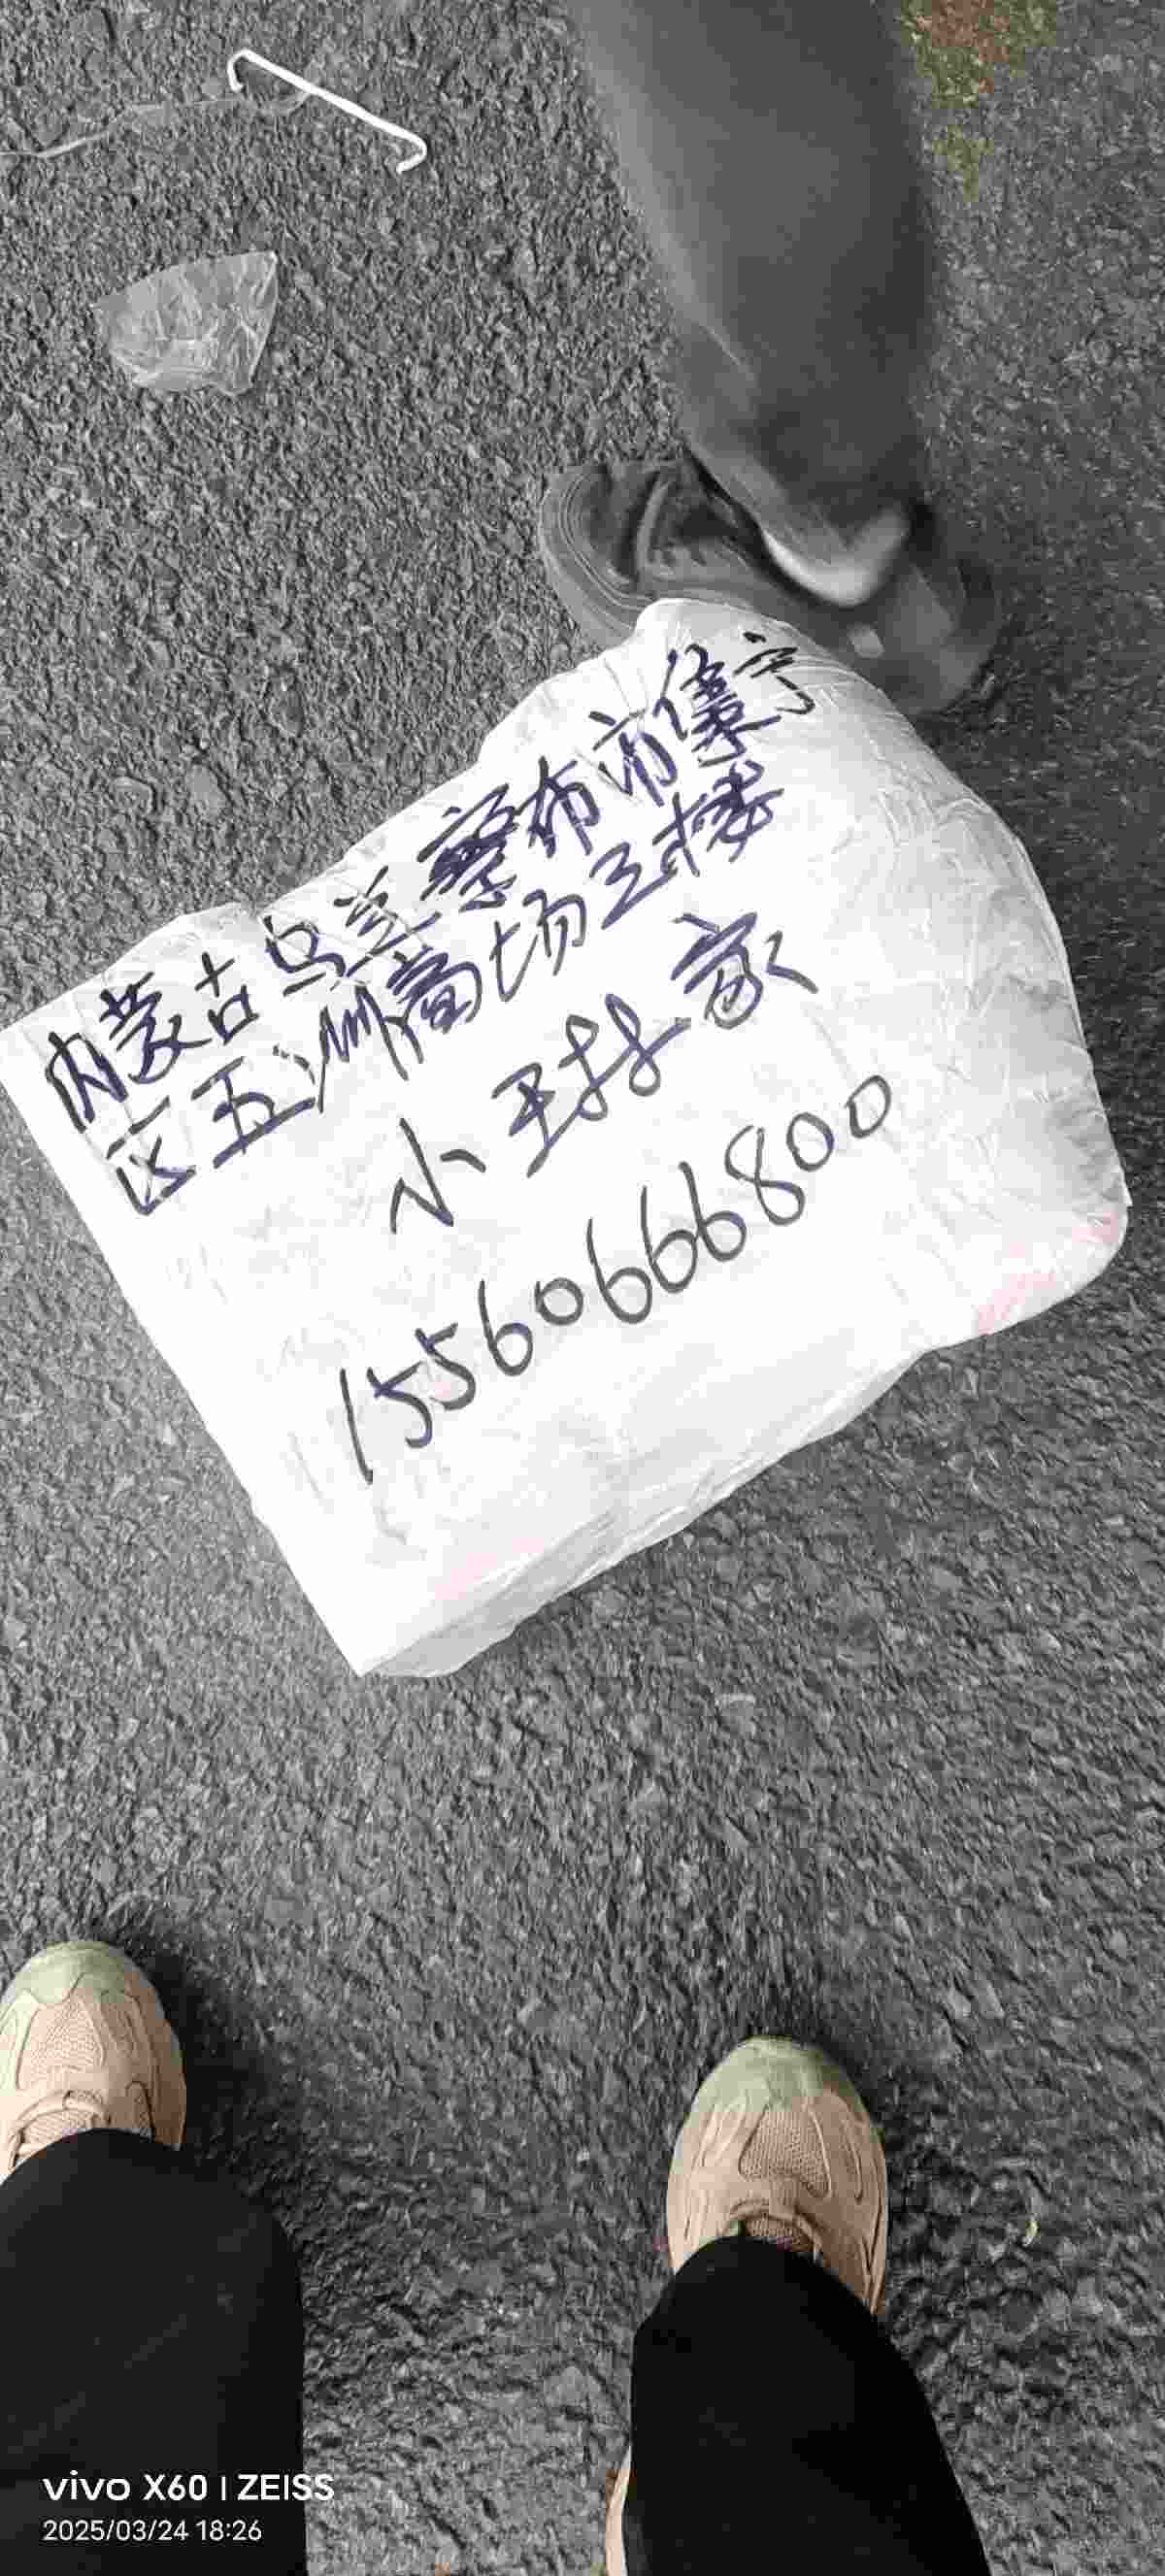 内蒙古乌兰察布市集宁
区五洲商场三楼
小王 家
15560666800
vivo X60 | ZEISS
2025/03/24 18:26